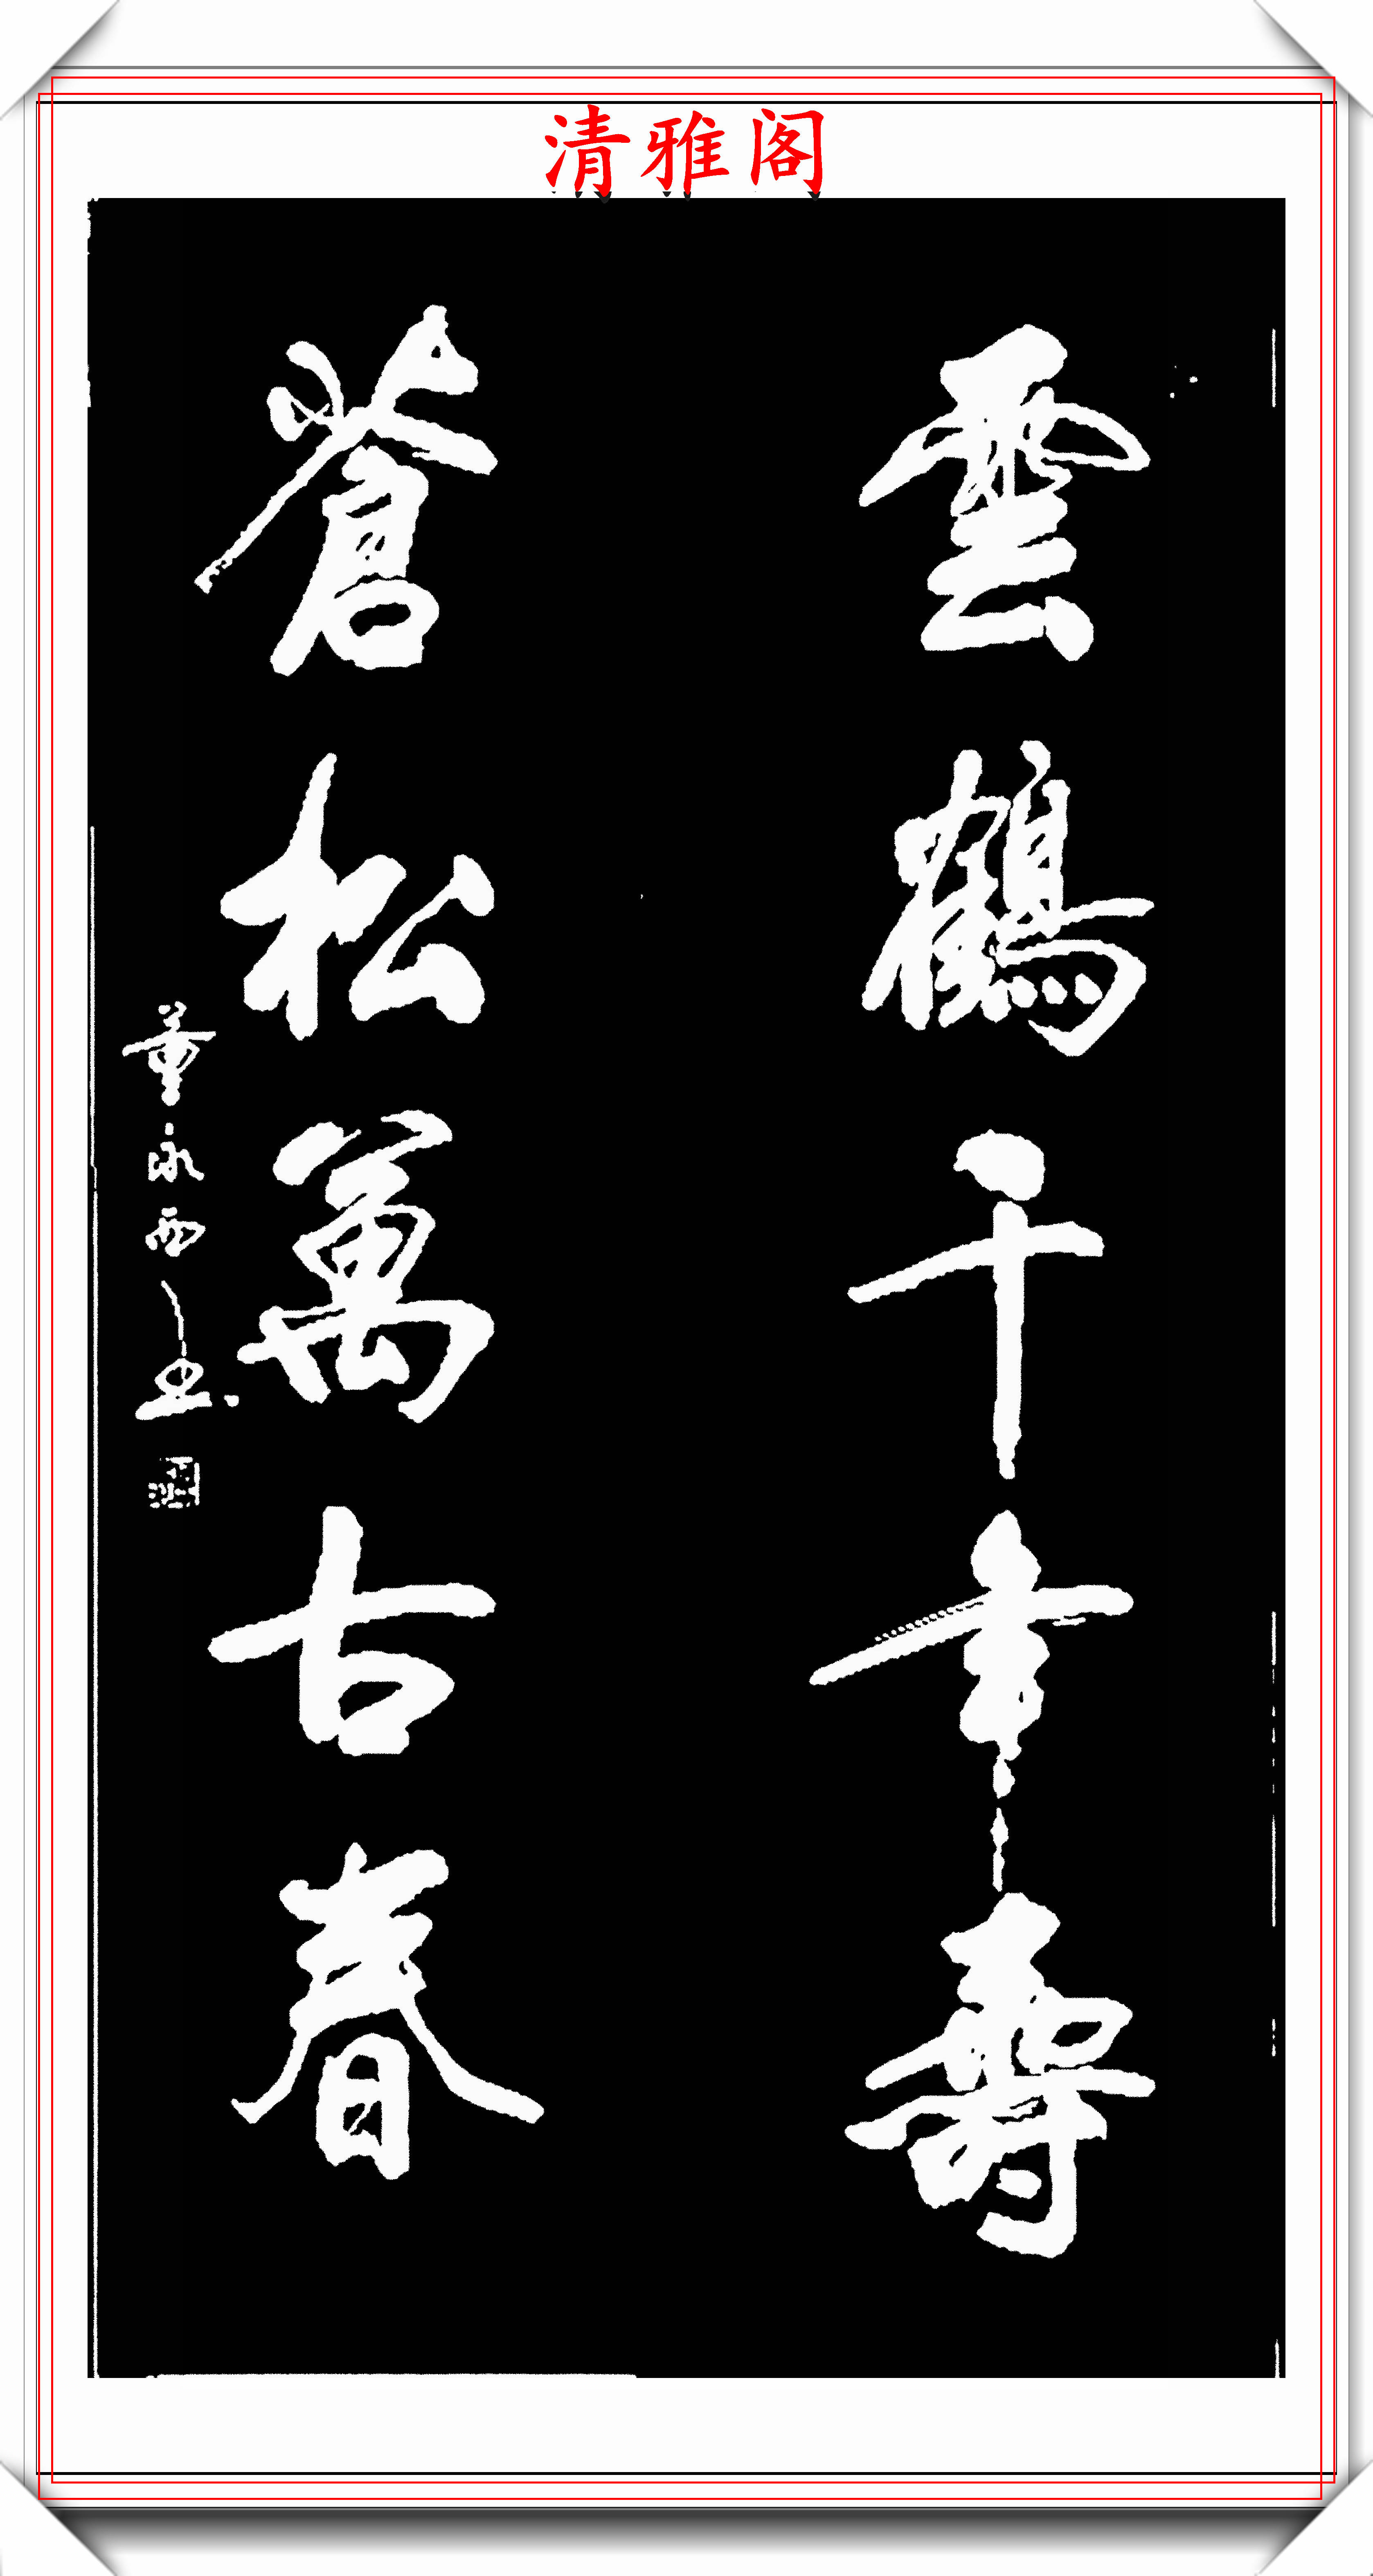 清雅阁
雲鶴千年壽
蒼松萬古春
董永西